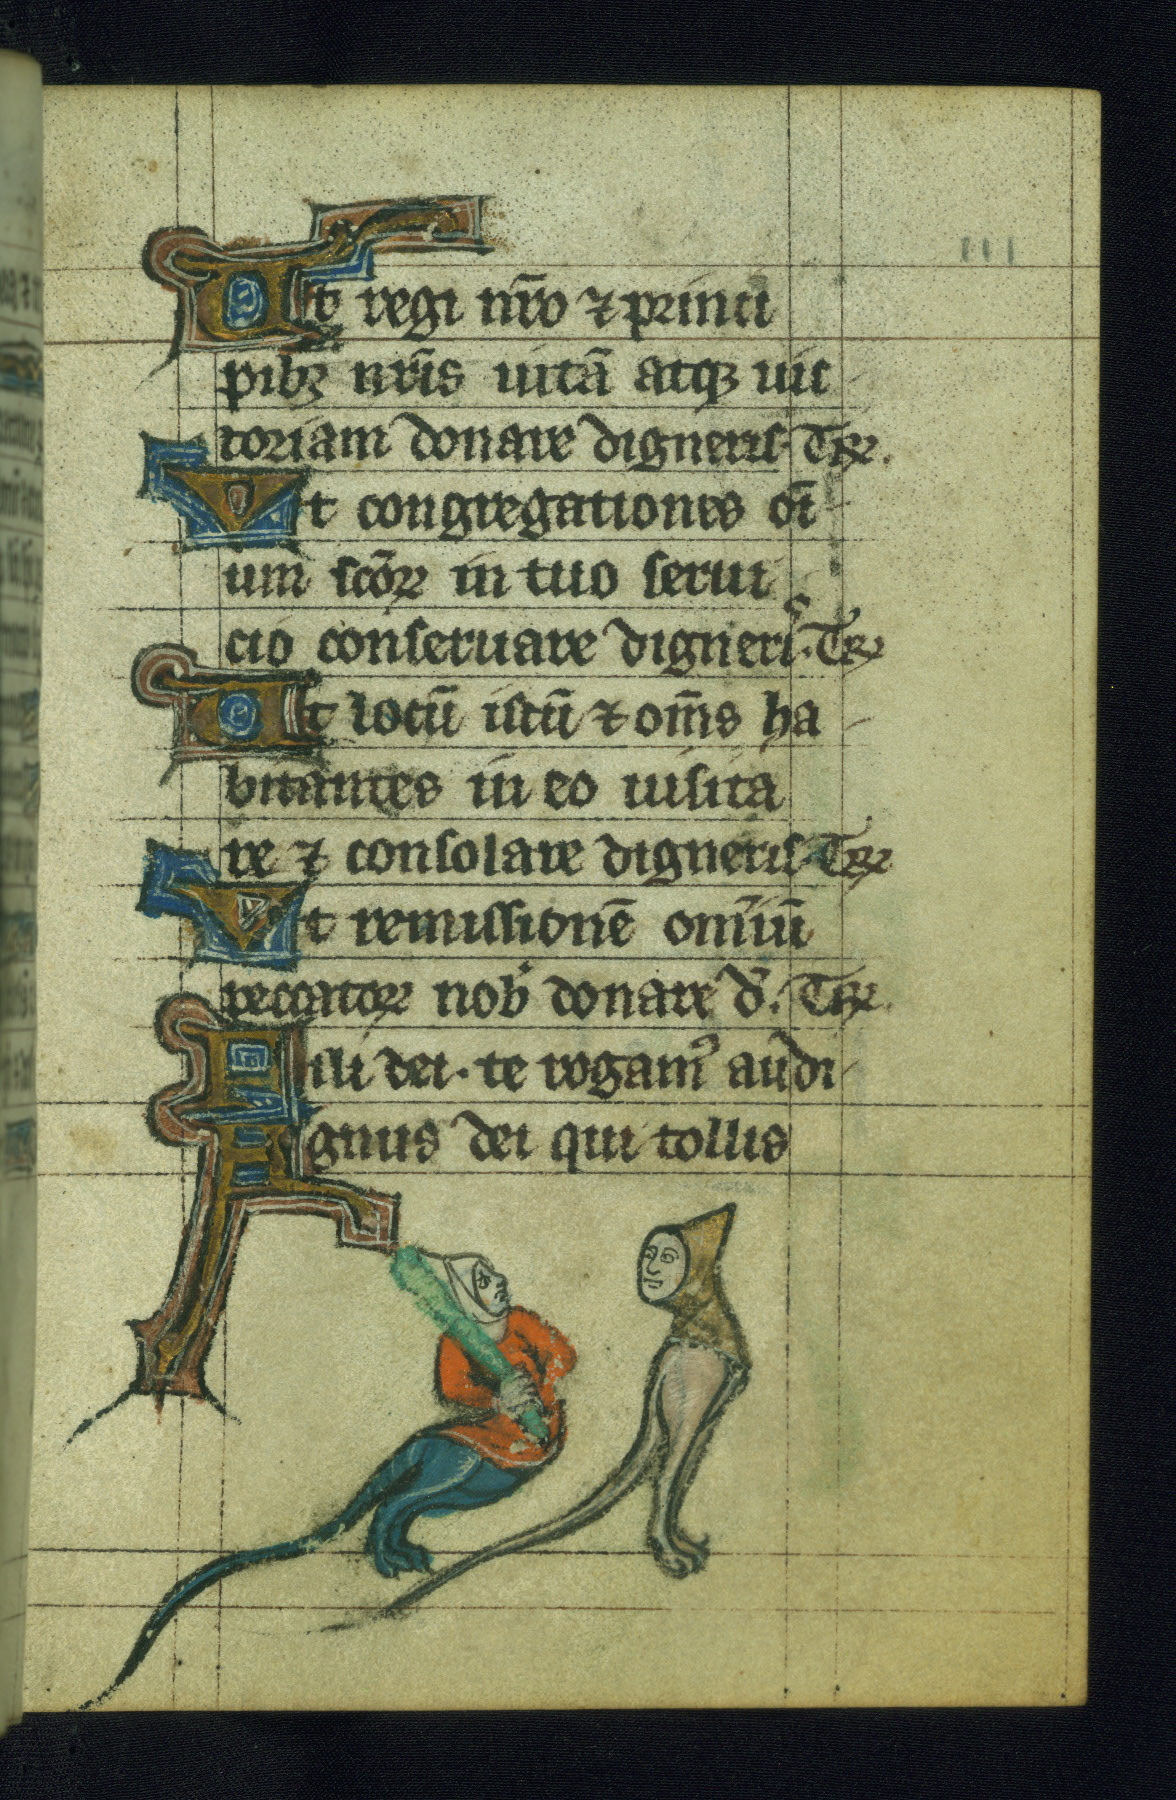 111
Ut regi nr̄o ⁊ princi
pibꝫ nr̄is uitā atqꝫ uic
toriam donare digneris. Tꝝ.
Ut congregationes om̄
ium scōꝝ in tuo serui
cio conseruare digneris. Tꝝ
Ut locū istū ⁊ om̄s ha
bitantes in eo uisita
re ⁊ consolare digneris. Tꝝ
Ut remissionē omīuū
peccatoꝝ nob̄ donare d̄. Tꝝ.
Fili dei. te rogamꝰ audi
Agnus dei qui tollis